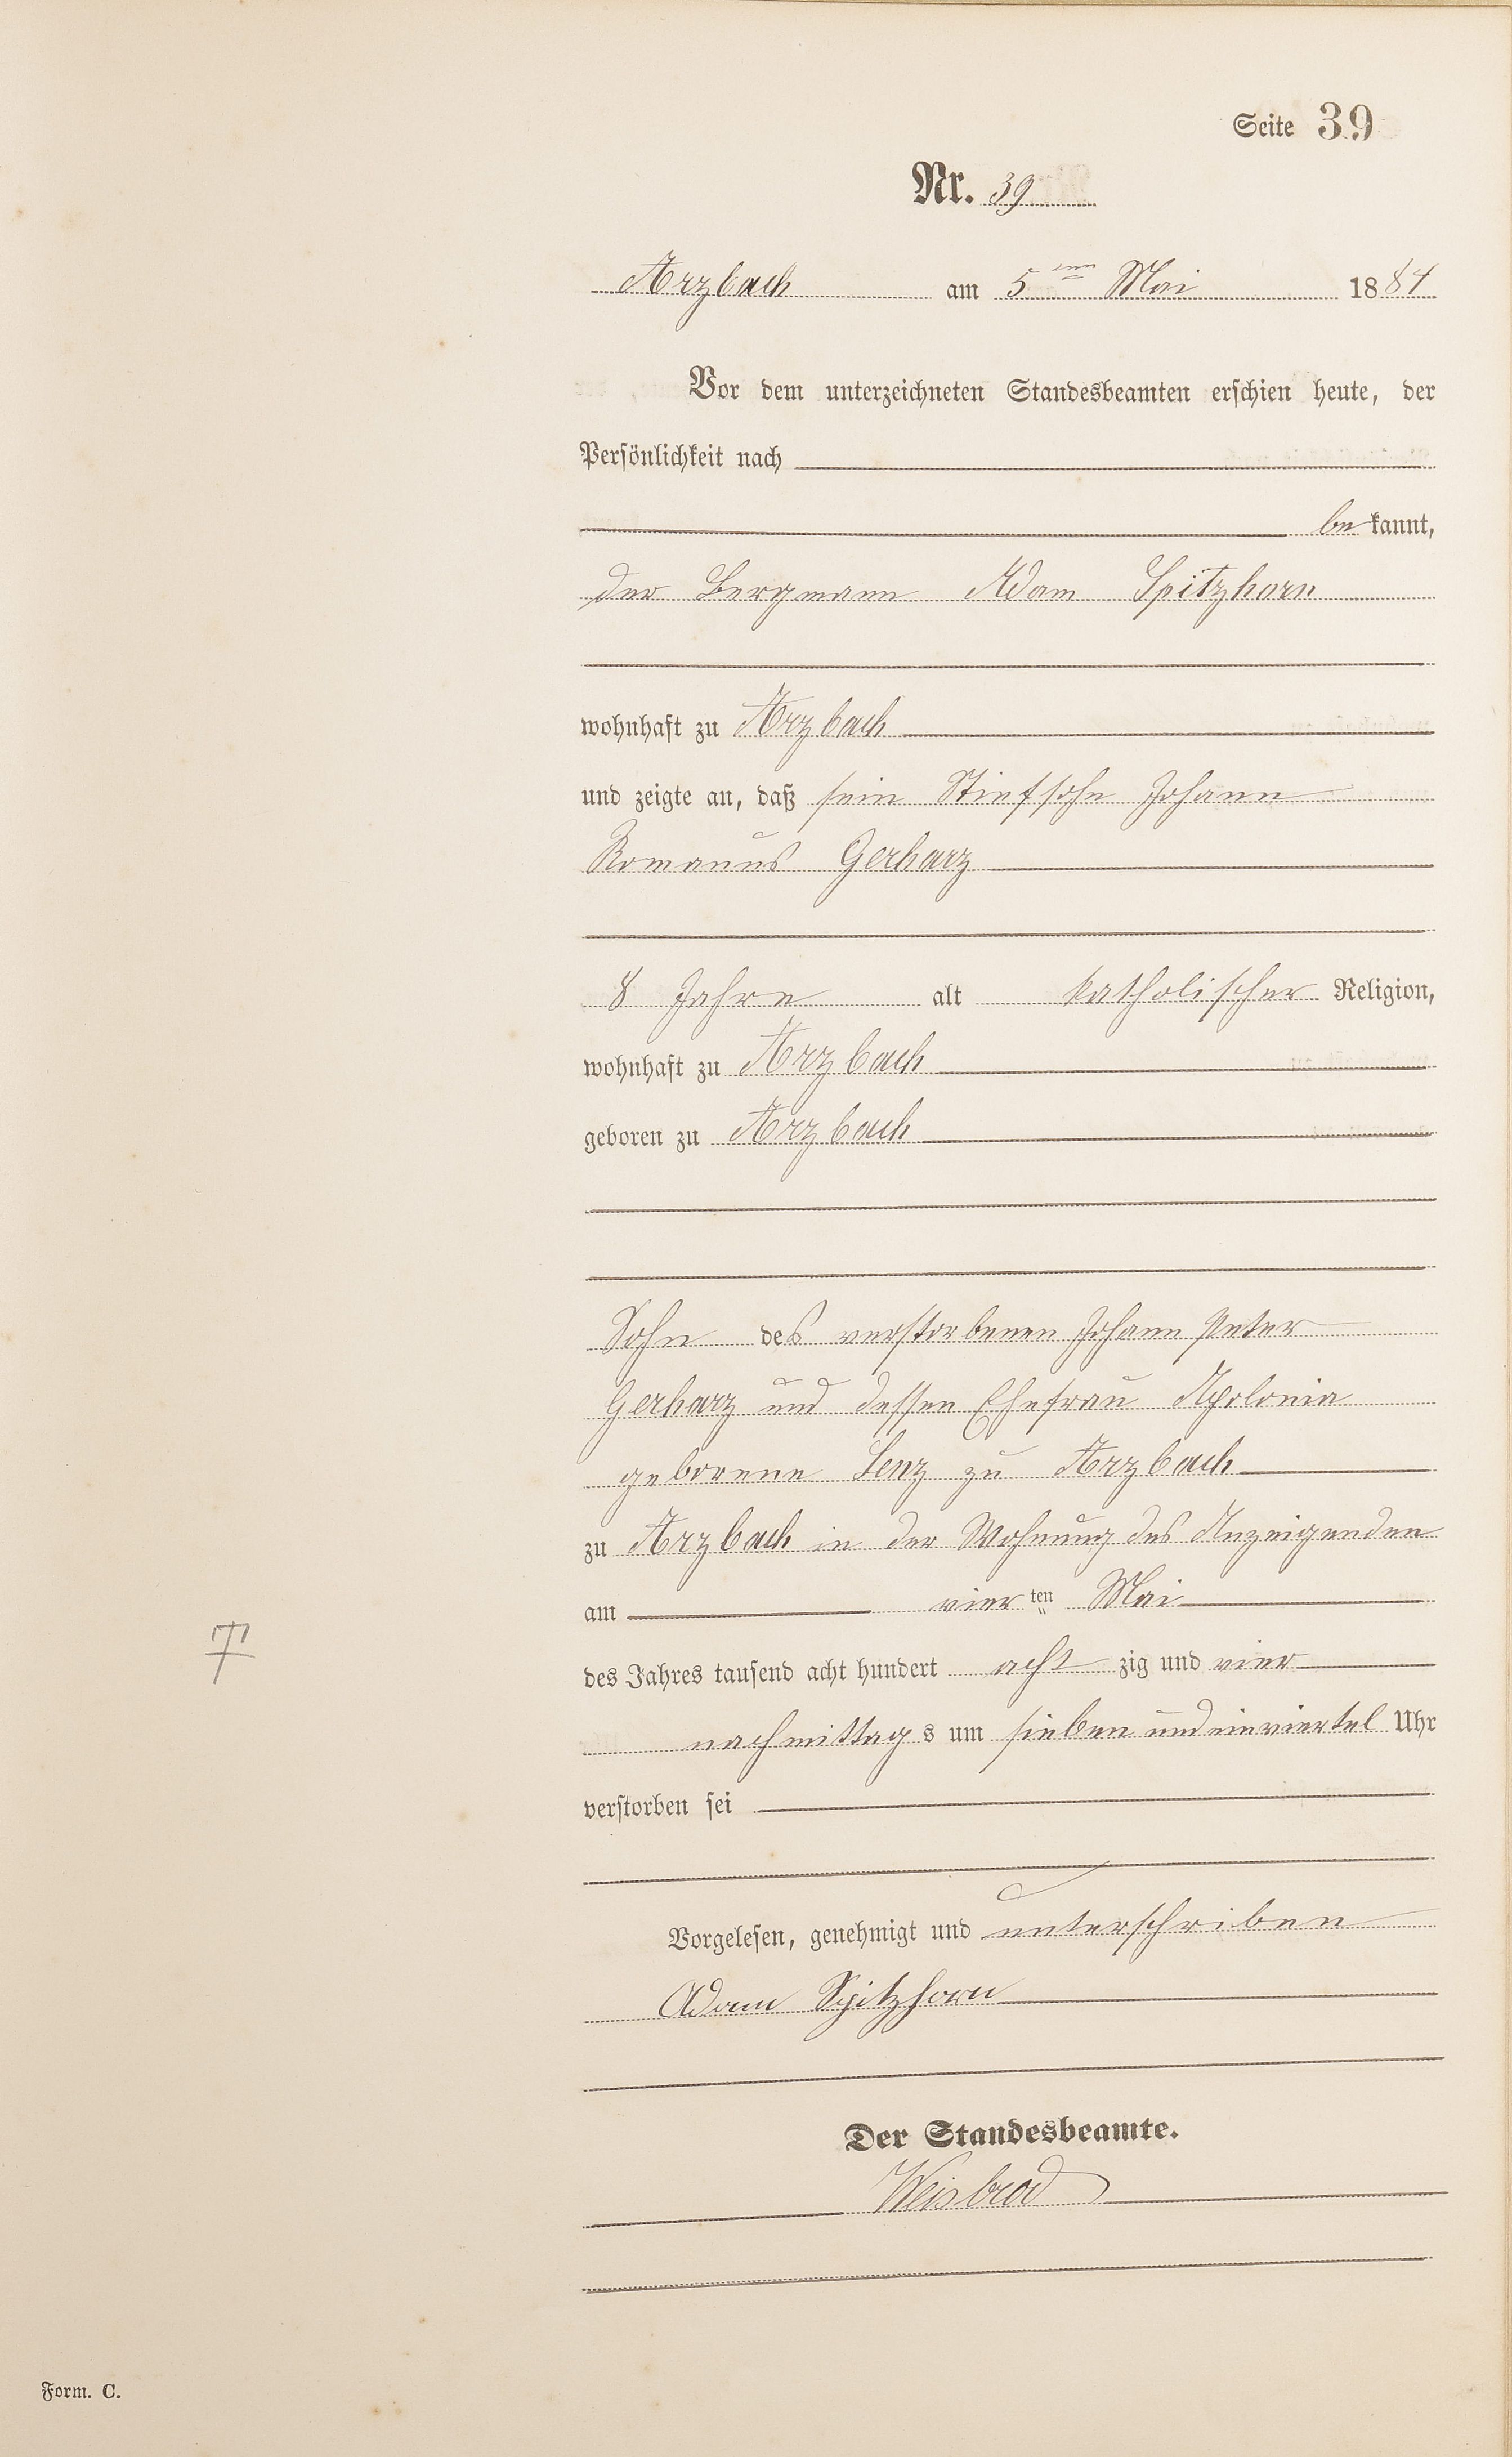 Seite 39
Nr. 39
Arzbach am 5ten Mai 1884
Vor dem unterzeichneten Standesbeamten erschien heute, der
Persönlichkeit nach
bekannt,
der Bergmann Adam Spitzhorn
wohnhaft zu Arzbach
und zeigte an, daß sein Stiefsohn Johann
Romanus Gerharz
8 Jahre alt katholischer Religion,
wohnhaft zu Arzbach
geboren zu Arzbach
Sohn des verstorbenen Johann Peter
Gerharz und dessen Ehefrau Apolonia
geborene Lenz zu Arzbach
zu Arzbach in der Wohnung des Anzeigenden
am vierten Mai
des Jahres tausend acht hundert acht zig und vier
nachmittags um sieben und ein viertel Uhr
verstorben sei
Vorgelesen, genehmigt und unterschriben
Adam Spitzhorn
Der Standesbeamte.
Weisbrod
Form. C.